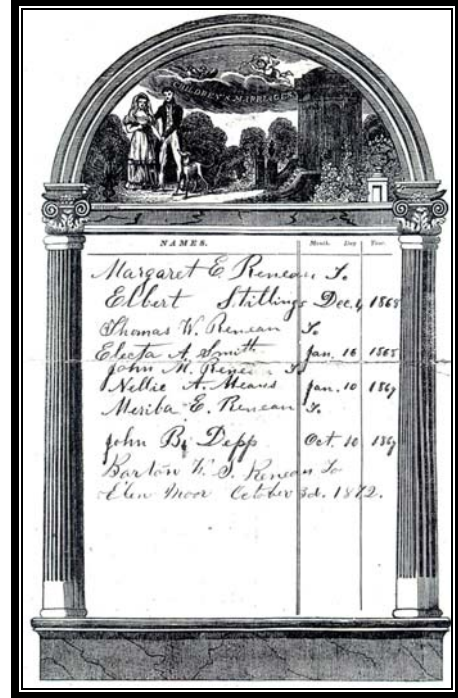 CHILDREN'S MARRIAGES
NAMES. Month. Day Year.
Margaret E. Reneau To
Elbert Stillings Dec. 4 1868
Thomas W. Reneau To
Electa A. Smith Jan. 16 1868
John M. Reneau To
Nellie A. Means Jan. 10 1867
Meriba E. Reneau To
John B. Depp Oct. 10 1867
Barton W. S. Reneau To
Elen Moor October 3d. 1872.